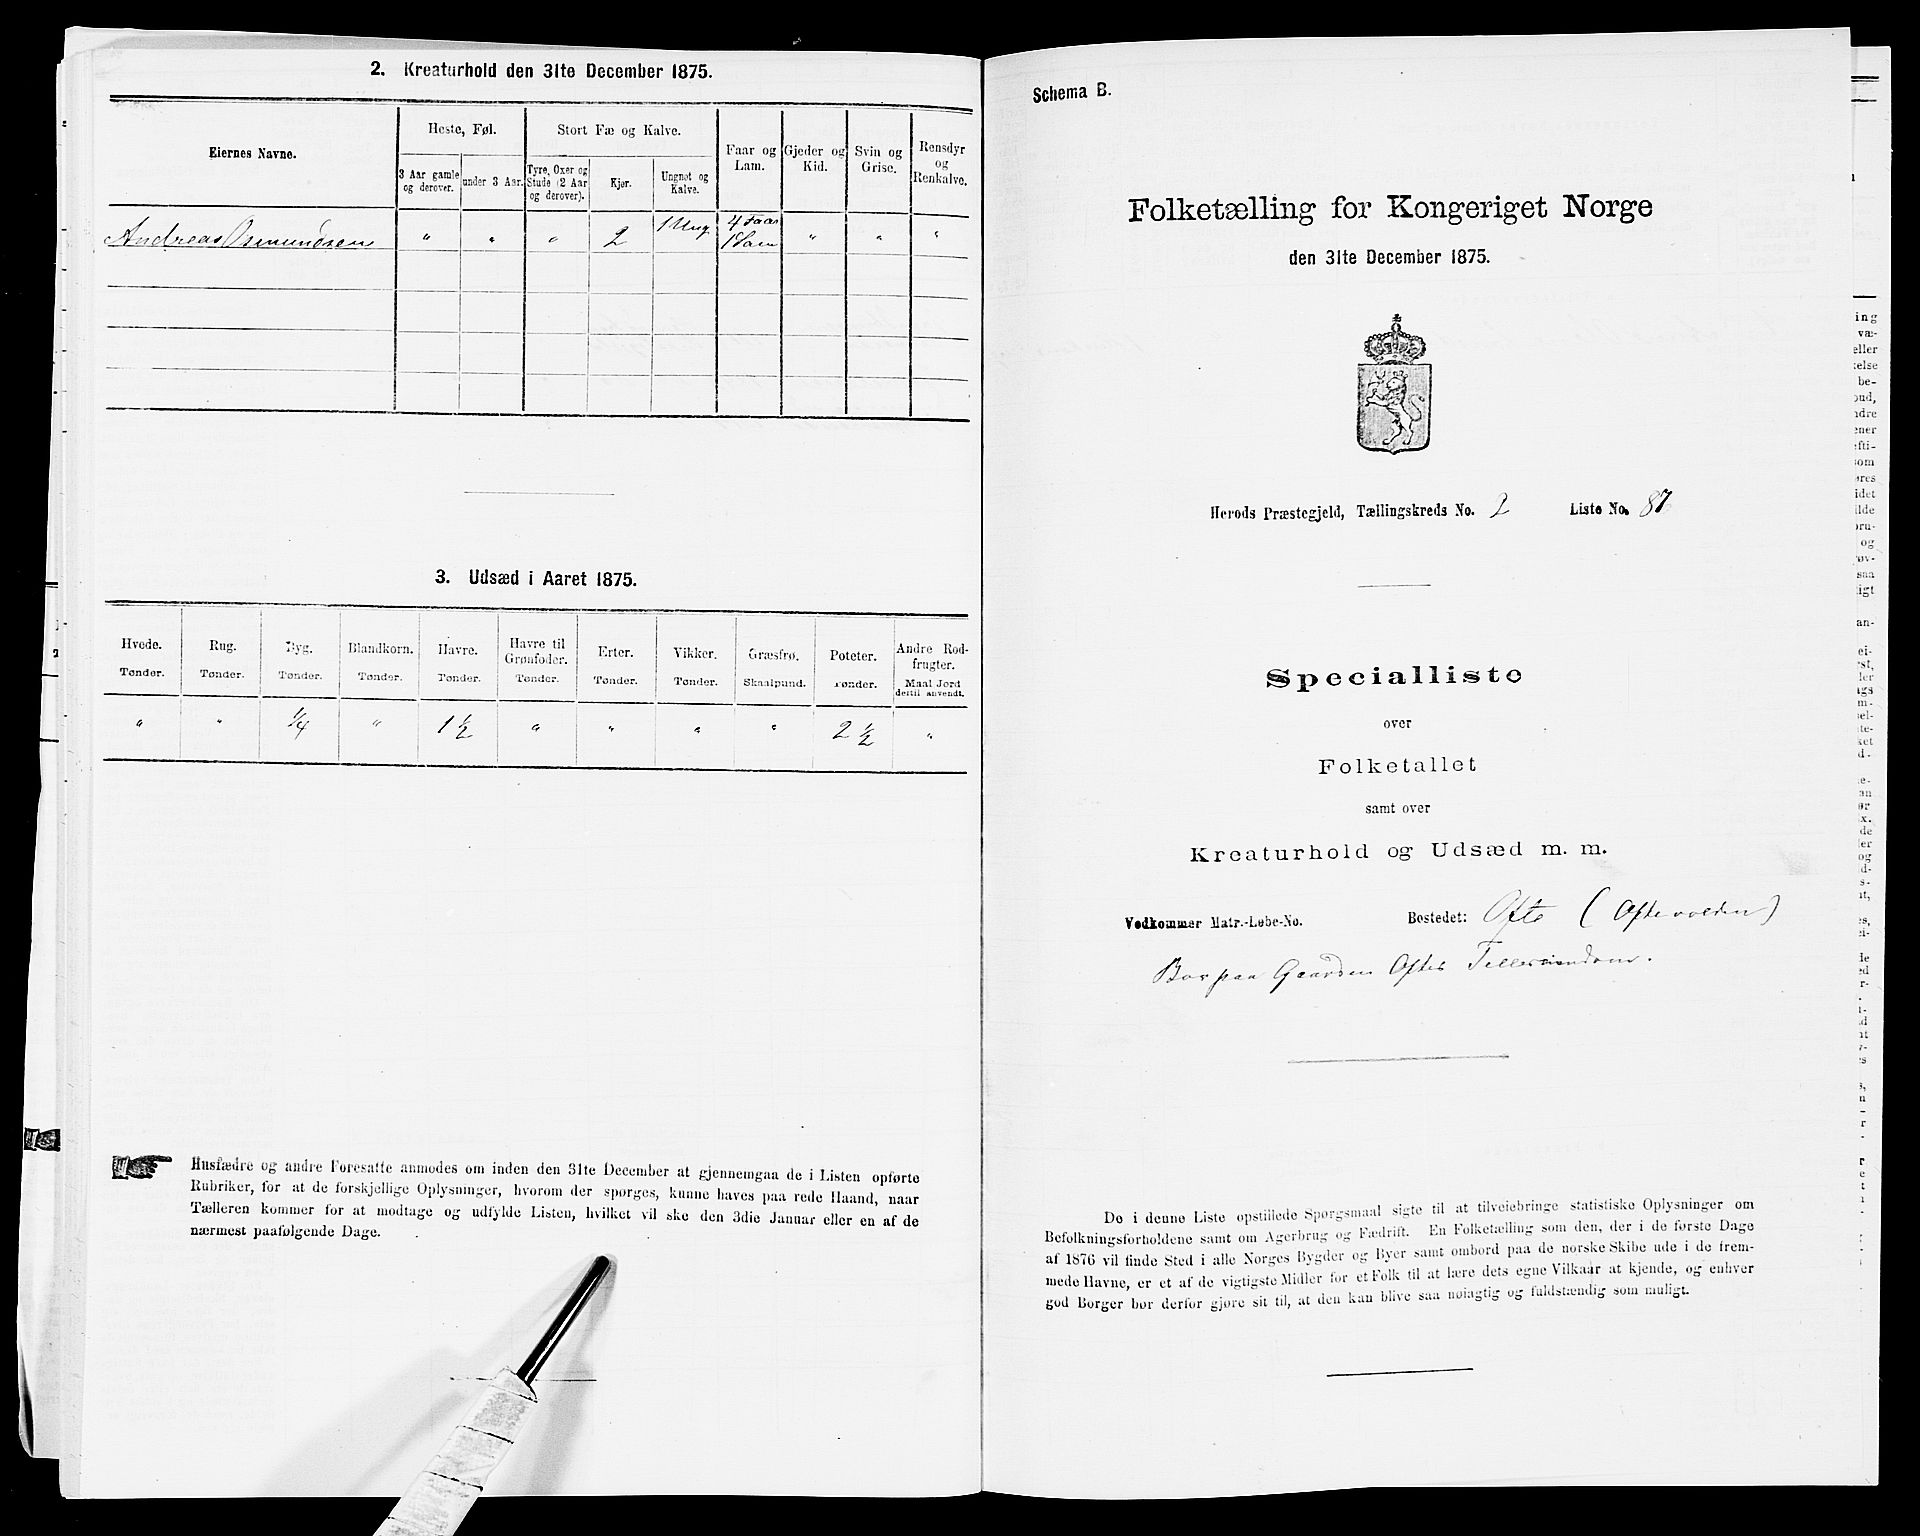 2. Kreaturhold den 31te December 1875.
Eiernes Navne.
Heste, Føl.
3 Aar gamle og derover.
under 3 Aar.
Stort Fæ og Kalve.
Tyre, Oxer og Stude (2 Aar og derover).
Kjør.
Ungnøt og Kalve.
Faar og Lam.
Gjeder og Kid.
Svin og Grise.
Rensdyr og Renkalve.
Andreas Osmundsen " " " 2 1 Ung 4 Faar 1 Lam " " "
3. Udsæd i Aaret 1875.
Hvede. Rug. Byg. Blandkorn. Havre. Havre til Grønfoder. Erter. Vikker. Græsfrø. Poteter. Andre Rodfrugter.
Tønder. Tønder. Tønder. Tønder. Tønder. Tønder. Tønder. Tønder. Skaalpund. Tønder. Maal Jord dertil anvendt.
" " 1/4 " 1 1/2 " " " " 2 1/2 "
Husfædre og andre Foresatte anmodes om inden den 31te December at gjennemgaa de i Listen opførte
Rubriker, for at de forskjellige Oplysninger, hvorom der spørges, kunne haves paa rede Haand, naar
Tælleren kommer for at modtage og udfylde Listen, hvilket vil ske den 3die Januar eller en af de
nærmest paafølgende Dage.
Schema B.
Folketælling for Kongeriget Norge
den 31te December 1875.
Herods Præstegjeld, Tællingskreds No. 2 Liste No. 87
Specialliste
over
Folketallet
samt over
Kreaturhold og Udsæd m. m.
Vedkommer Matr.-Løbe-No. Bostedet: Ofte (Oftevolden)
Bor paa Gaarden Oftes
De i denne Liste opstillede Spørgsmaal sigte til at tilveiebringe statistiske Oplysninger om
Befolkningsforholdene samt om Agerbrug og Fædrift. En Folketælling som den, der i de første Dage
af 1876 vil finde Sted i alle Norges Bygder og Byer samt ombord paa de norske Skibe ude i de frem-
mede Havne, er et af de vigtigste Midler for et Folk til at lære dets egne Vilkaar at kjende, og enhver
god Borger bør derfor gjøre sit til, at den kan blive saa nøiagtig og fuldstændig som muligt.